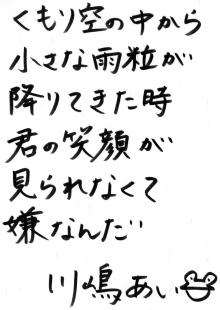 くもり空の中から
小さな雨粒が
降りてきた時
君の笑顔が
見られなくて
嫌なんだ
川嶋あい